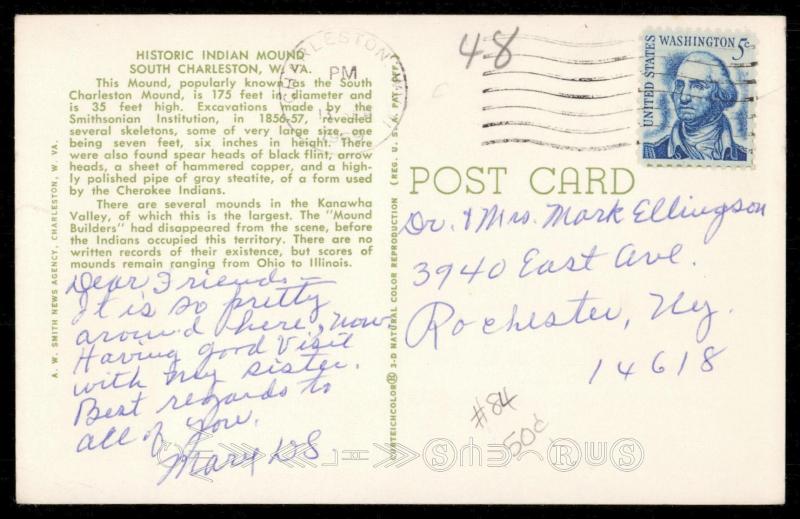 HISTORIC INDIAN MOUND
SOUTH CHARLESTON, W. VA.
This Mound, popularly known as the South
Charleston Mound, is 175 feet in diameter and
is 35 feet high. Excavations made by the
Smithsonian Institution, in 1856-57, revealed
several skeletons, some of very large size, one
being seven feet, six inches in height. There
were also found spear heads of black flint, arrow
heads, a sheet of hammered copper, and a high-
ly polished pipe of gray steatite, of a form used
by the Cherokee Indians.
There are several mounds in the Kanawha
Valley, of which this is the largest. The "Mound
Builders" had disappeared from the scene, before
the Indians occupied this territory. There are no
written records of their existence, but scores of
mounds remain ranging from Ohio to Illinois.
Dear Friends—
It is so pretty
around here, now.
Having good visit
with my sister.
Best regards to
all of you.
Mary
A. W. SMITH NEWS AGENCY, CHARLESTON, W. VA.
CURTEICHCOLOR® 3-D NATURAL COLOR REPRODUCTION (REG. U. S. A. PAT. OFF.)
CHARLESTON
PM
48
UNITED STATES
WASHINGTON 5c
POST CARD
Dr. & Mrs. Mark Ellingson
3940 East Ave.
Rochester, Ny.
14618
#84
50¢